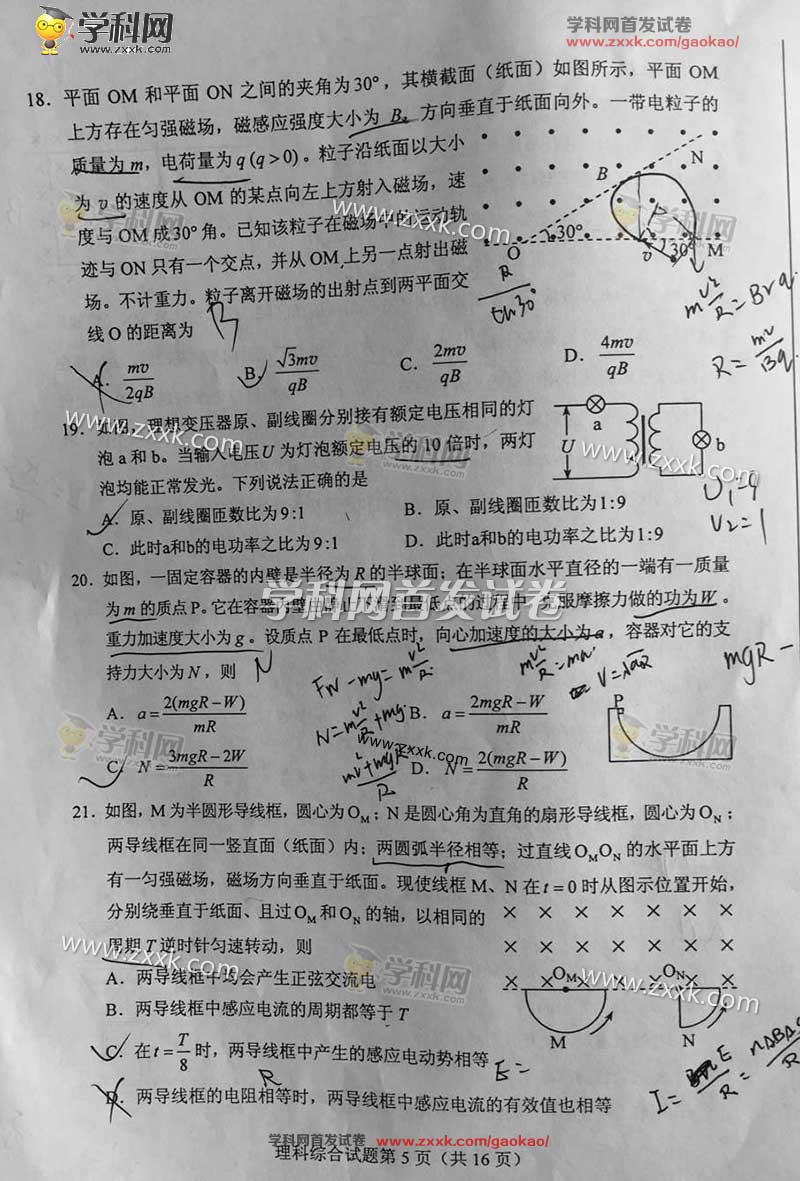 学科网
www.zxxk.com
学科网首发试卷
www.zxxk.com/gaokao/
18. 平面 OM 和平面 ON 之间的夹角为30°，其横截面（纸面）如图所示，平面 OM
上方存在匀强磁场，磁感应强度大小为 B，方向垂直于纸面向外。一带电粒子的
质量为 m，电荷量为 q (q > 0)。粒子沿纸面以大小
为 v 的速度从 OM 的某点向左上方射入磁场，速
度与 OM 成30°角。已知该粒子在磁场中的运动轨
迹与 ON 只有一个交点，并从 OM 上另一点射出磁
场。不计重力。粒子离开磁场的出射点到两平面交
线 O 的距离为
B N
O 30° v 30° M
R/tan30°
m v²/R = Bvq
R = mv/Bq
A. mv/2qB B. √3mv/qB C. 2mv/qB D. 4mv/qB
19. 如图，理想变压器原、副线圈分别接有额定电压相同的灯
泡 a 和 b。当输入电压U 为灯泡额定电压的 10 倍时，两灯
泡均能正常发光。下列说法正确的是
A. 原、副线圈匝数比为9:1 B. 原、副线圈匝数比为1:9
C. 此时a和b的电功率之比为9:1 D. 此时a和b的电功率之比为1:9
a U b
U₁=9
U₂=1
20. 如图，一固定容器的内壁是半径为 R 的半球面；在半球面水平直径的一端有一质量
为 m 的质点 P。它在容器内壁由静止下滑到最低点的过程中，克服摩擦力做的功为W。
重力加速度大小为 g。设质点 P 在最低点时，向心加速度的大小为 a，容器对它的支
持力大小为 N，则
N
FN-mg=m v²/R
N=m v²/R+mg
mgR-
A. a = 2(mgR-W)/mR B. a = 2mgR-W/mR
C. N = 3mgR-2W/R D. N = 2(mgR-W)/R
P
21. 如图，M 为半圆形导线框，圆心为 O_M；N 是圆心角为直角的扇形导线框，圆心为 O_N；
两导线框在同一竖直面（纸面）内；两圆弧半径相等；过直线 O_M O_N 的水平面上方
有一匀强磁场，磁场方向垂直于纸面。现使线框 M、N 在 t = 0 时从图示位置开始，
分别绕垂直于纸面、且过 O_M 和 O_N 的轴，以相同的
周期 T 逆时针匀速转动，则
A. 两导线框中均会产生正弦交流电
B. 两导线框中感应电流的周期都等于 T
C. 在 t = T/8 时，两导线框中产生的感应电动势相等
D. 两导线框的电阻相等时，两导线框中感应电流的有效值也相等
O_M O_N
M N
R
E=
学科网首发试卷
www.zxxk.com/gaokao/
理科综合试题第 5 页（共 16 页）